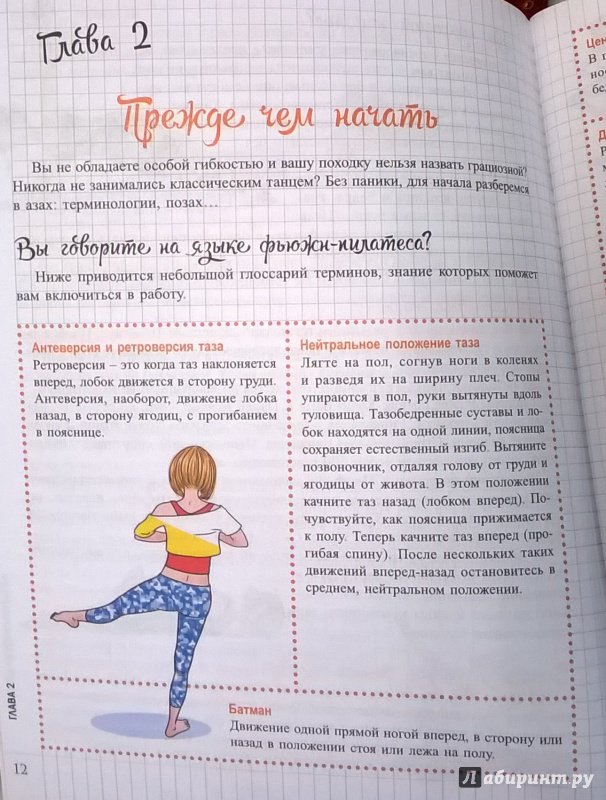 Глава 2
Прежде чем начать
Вы не обладаете особой гибкостью и вашу походку нельзя назвать грациозной?
Никогда не занимались классическим танцем? Без паники, для начала разберемся
в азах: терминологии, позах…
Вы говорите на языке фьюжн-пилатеса?
Ниже приводится небольшой глоссарий терминов, знание которых поможет
вам включиться в работу.
Антеверсия и ретроверсия таза
Ретроверсия – это когда таз наклоняется
вперед, лобок движется в сторону груди.
Антеверсия, наоборот, движение лобка
назад, в сторону ягодиц, с прогибанием
в пояснице.
Нейтральное положение таза
Лягте на пол, согнув ноги в коленях
и разведя их на ширину плеч. Стопы
упираются в пол, руки вытянуты вдоль
туловища. Тазобедренные суставы и ло-
бок находятся на одной линии, поясница
сохраняет естественный изгиб. Вытяните
позвоночник, отдаляя голову от груди и
ягодицы от живота. В этом положении
качните таз назад (лобком вперед). По-
чувствуйте, как поясница прижимается
к полу. Теперь качните таз вперед (про-
гибая спину). После нескольких таких
движений вперед-назад остановитесь в
среднем, нейтральном положении.
Батман
Движение одной прямой ногой вперед, в сторону или
назад в положении стоя или лежа на полу.
ГЛАВА 2
12
Цен
В п
но
бе
Лабиринт.ру